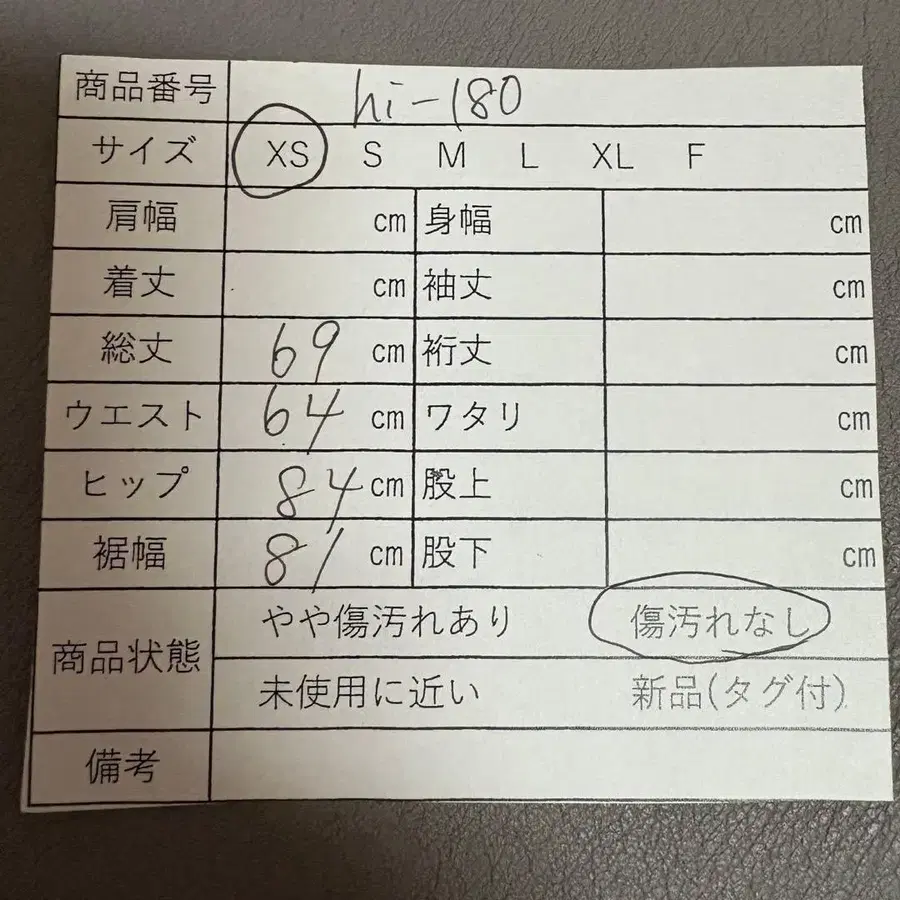 商品番号 hi-180
サイズ XS S M L XL F
肩幅 cm 身幅 cm
着丈 cm 袖丈 cm
総丈 69 cm 裄丈 cm
ウエスト 64 cm ワタリ cm
ヒップ 84 cm 股上 cm
裾幅 81 cm 股下 cm
商品状態 やや傷汚れあり 傷汚れなし
未使用に近い 新品(タグ付)
備考